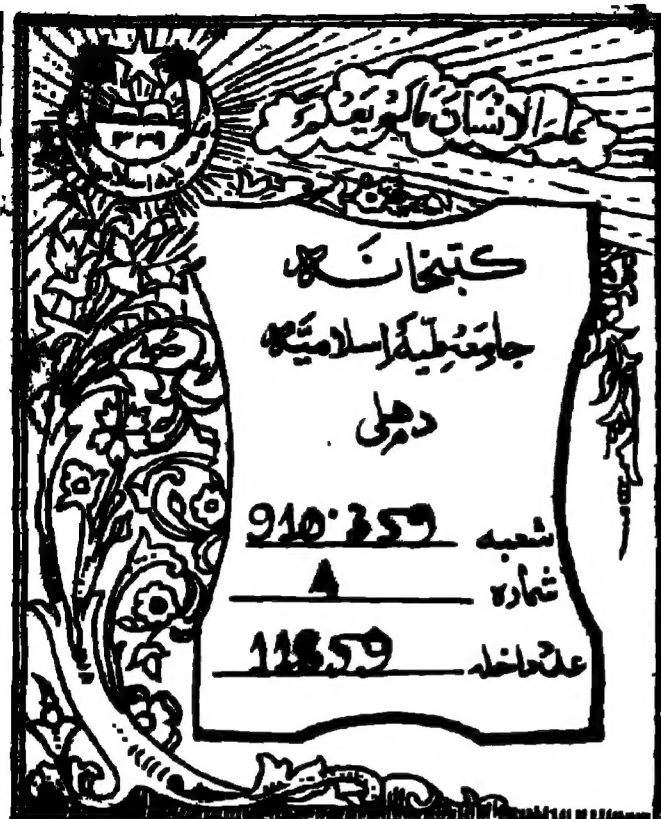 علم الانسان مالم يعلم
کتبخانہ
جامعہ ملیہ اسلامیہ
دہلی
شعبہ 910.359
شمارہ
عدد داخلہ 11859